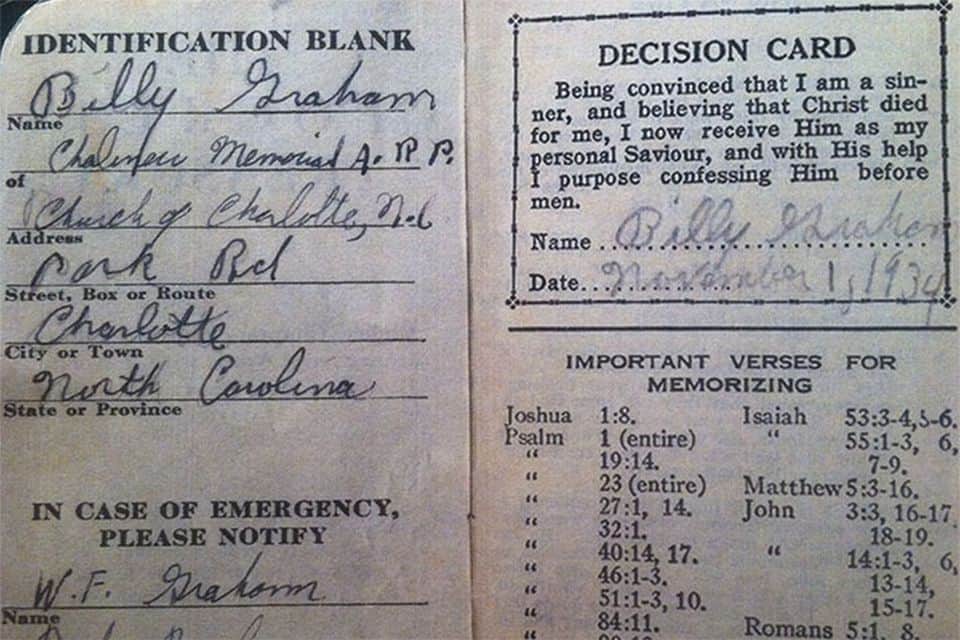 IDENTIFICATION BLANK
Billy Graham
Name
Chalmers Memorial A. R. P.
of
Church of Charlotte, N.C
Address
Park Rd
Street, Box or Route
Charlotte
City or Town
North Carolina
State or Province
IN CASE OF EMERGENCY,
PLEASE NOTIFY
W.F. Graham
Name
DECISION CARD
Being convinced that I am a sin-
ner, and believing that Christ died
for me, I now receive Him as my
personal Saviour, and with His help
I purpose confessing Him before
men.
Name .. Billy Graham
Date... November 1, 1934
IMPORTANT VERSES FOR
MEMORIZING
Joshua 1:8. Isaiah 53:3-4,5-6.
Psalm 1 (entire) " 55:1-3, 6,
" 19:14. 7-9.
" 23 (entire) Matthew 5:3-16.
" 27:1, 14. John 3:3, 16-17
" 32:1. 18-19.
" 40:14, 17. " 14:1-3, 6,
" 46:1-3. 13-14,
" 51:1-3, 10. 15-17.
" 84:11. Romans 5:1, 8